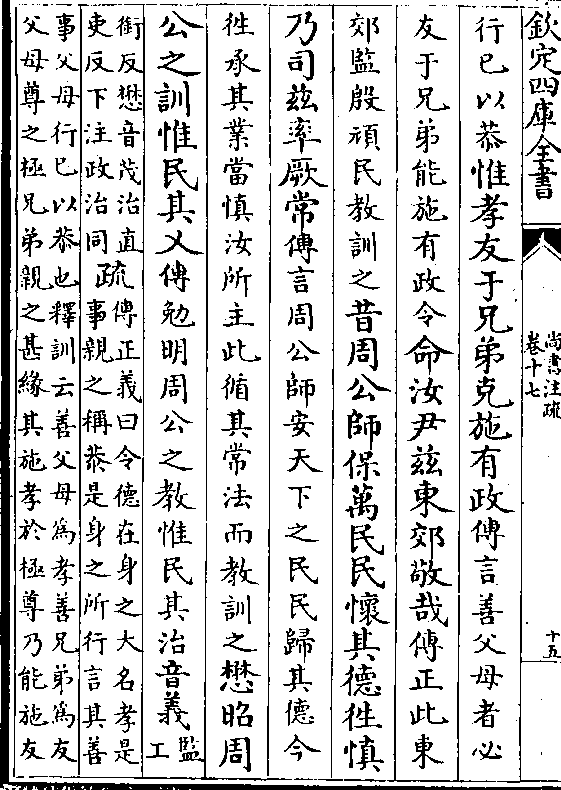 欽定四庫全書
尚書注疏
卷十七
十五
行已以恭惟孝友于兄弟克施有政傳言善父母者必
友于兄弟能施有政令命汝尹兹東郊敬哉傳正此東
郊監殷頑民教訓之昔周公師保萬民民懷其德徃慎
乃司兹率厥常傳言周公師安天下之民民歸其德今
徃承其業當慎汝所主此循其常法而教訓之懋昭周
公之訓惟民其乂傳勉明周公之教惟民其治音義監工
銜反懋音茂治直
吏反下注政治同疏傳正義曰令德在身之大名孝是
事親之稱恭是身之所行言其善
事父母行已以恭也釋訓云善父母為孝善兄弟為友
父母尊之極兄弟親之甚緣其施孝於極尊乃能施友